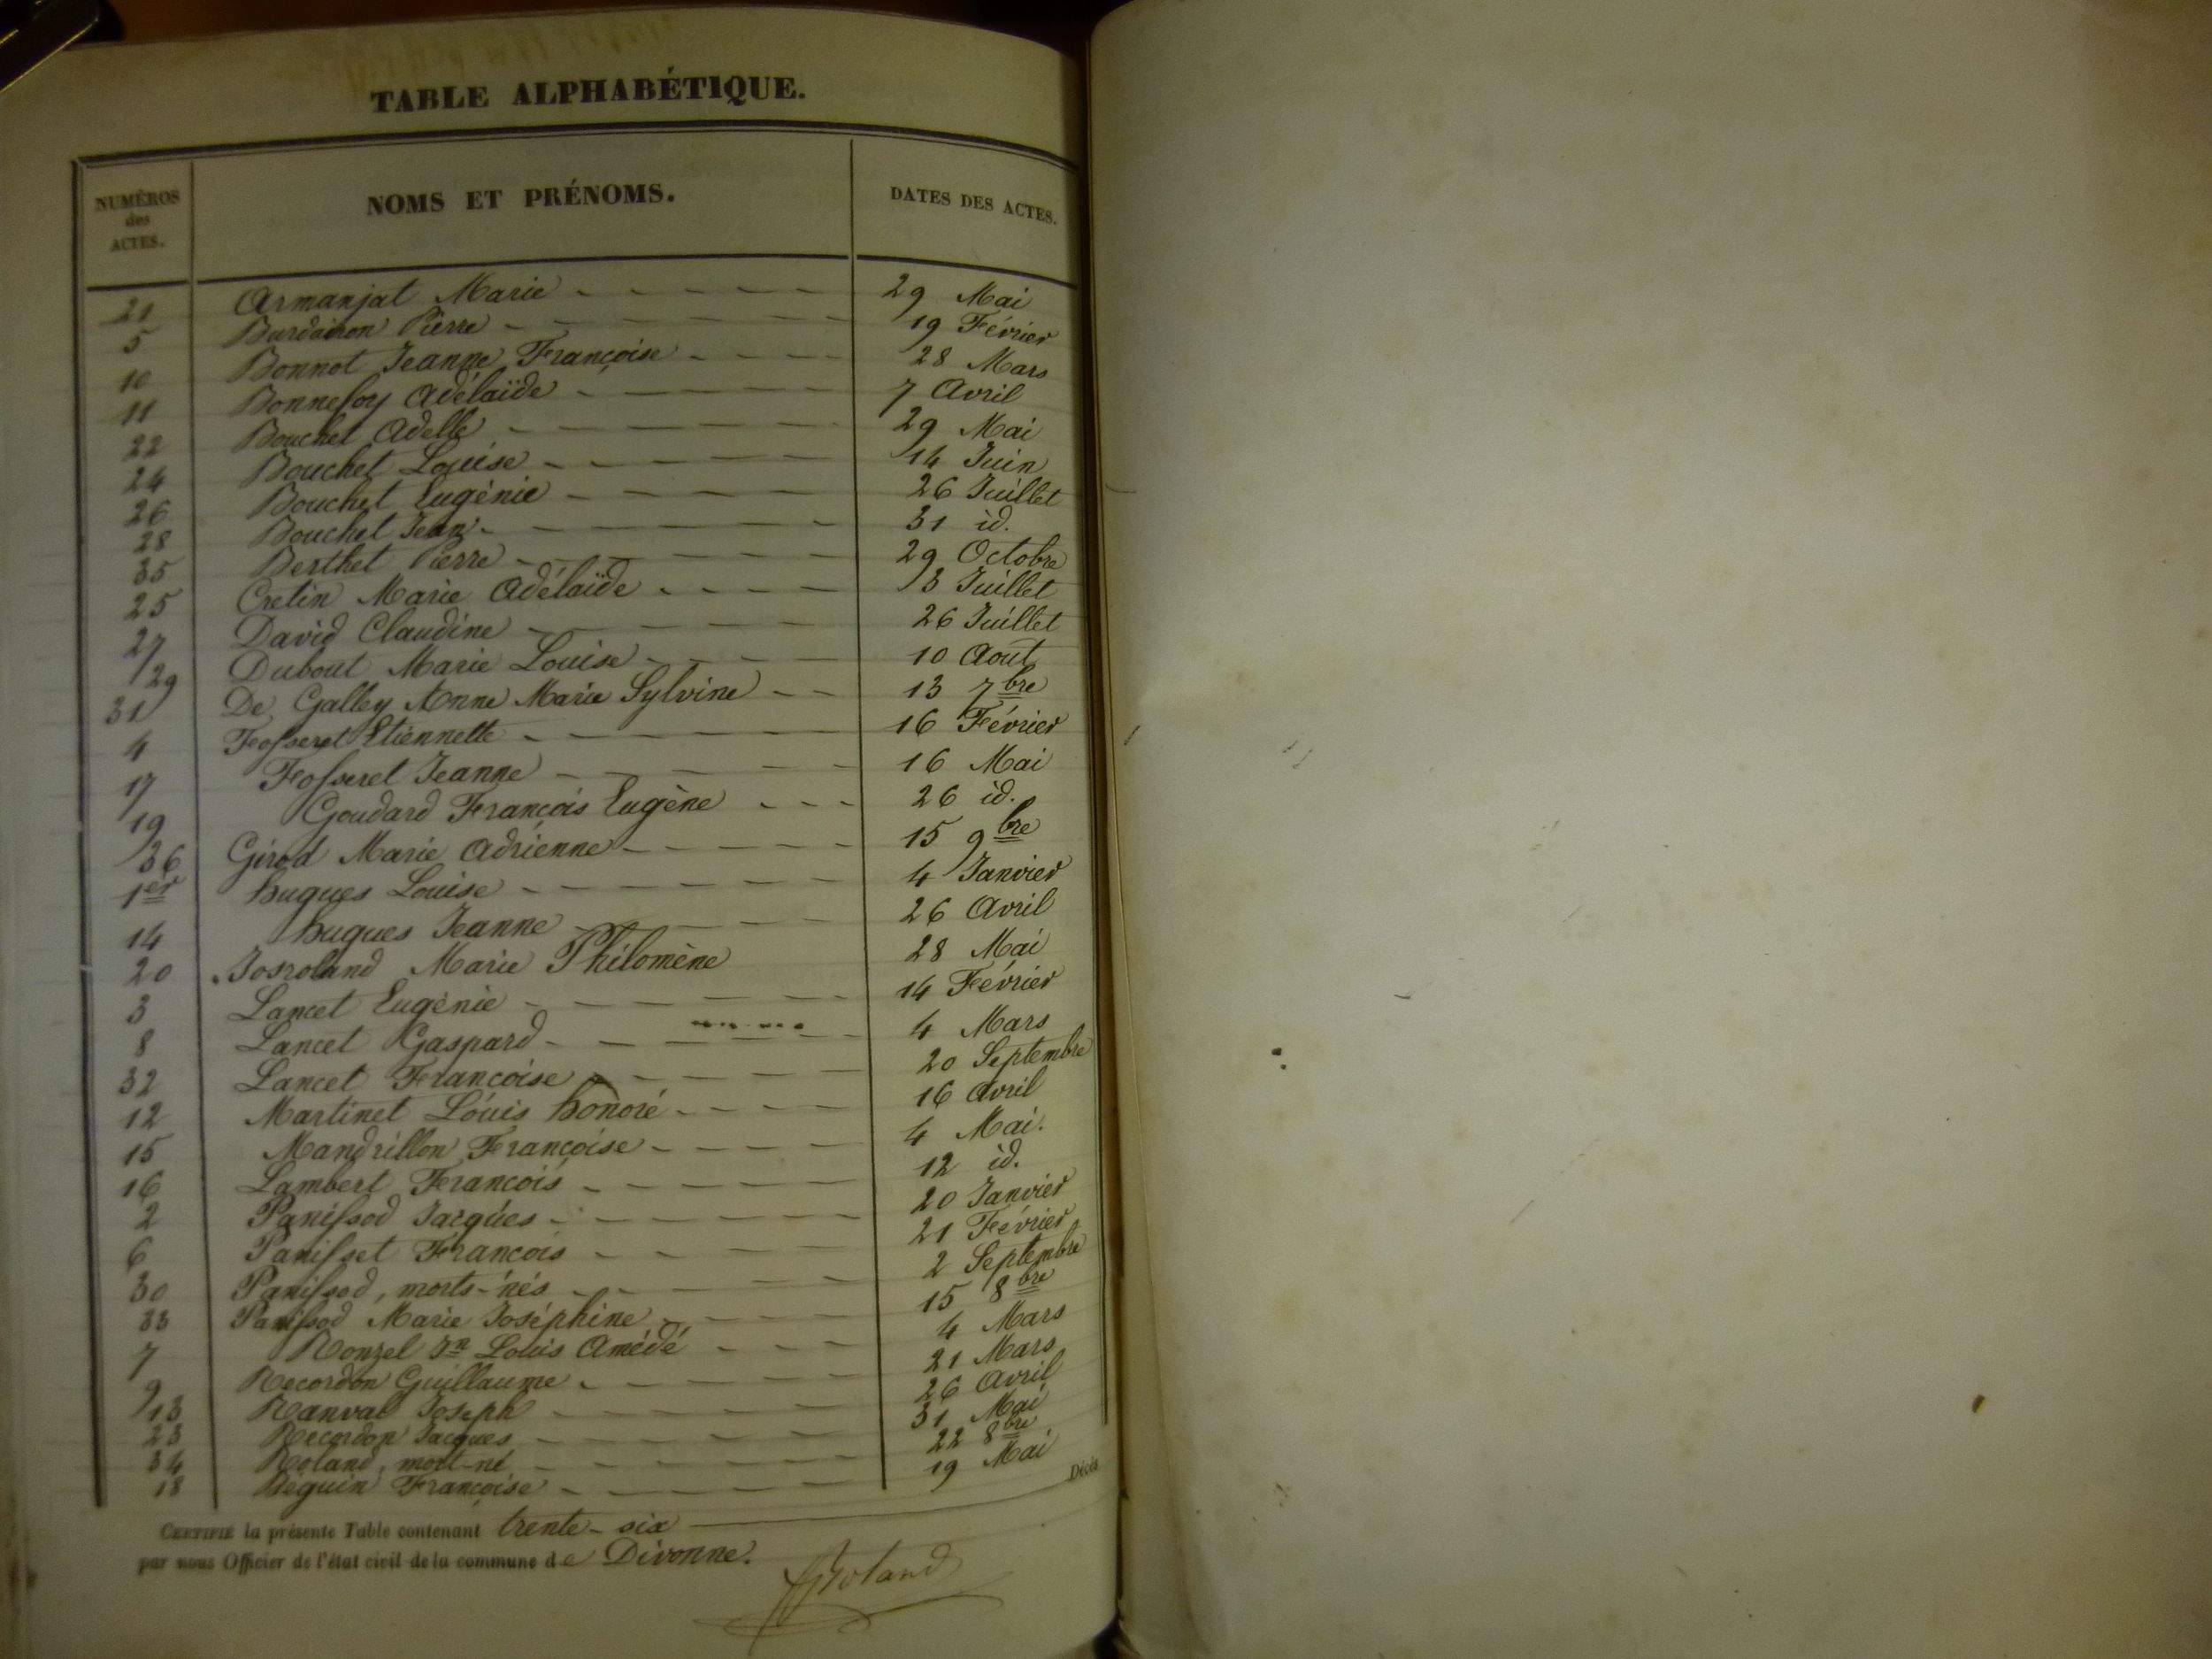 TABLE ALPHABÉTIQUE.
NUMÉROS des ACTES. NOMS ET PRÉNOMS. DATES DES ACTES.
21 Armanjat Marie 29 Mai
5 Burdairon Pierre 19 Février
10 Bonnot Jeanne Françoise 28 Mars
11 Bonnefoy Adélaïde 7 Avril
22 Bouchet Adelle 29 Mai
24 Bouchet Louise 14 Juin
26 Bouchet Eugénie 26 Juillet
28 Bouchet Jean 31 id.
35 Berthet Pierre 29 Octobre
25 Cretin Marie Adélaïde 3 Juillet
27 David Claudine 26 Juillet
29 Dubout Marie Louise 10 Aout
31 De Galley Anne Marie Sylvine 13 7bre
4 Fosseret Etiennette 16 Février
17 Fosseret Jeanne 16 Mai
19 Goudard François Eugène 26 id.
36 Girod Marie Adrienne 15 9bre
1er hugues Louise 4 Janvier
14 hugues Jeanne 26 Avril
20 Josroland Marie Philomène 28 Mai
3 Lancet Eugénie 14 Février
8 Lancet Gaspard 4 Mars
32 Lancet Françoise 20 Septembre
12 Martinet Louis honoré 16 avril
15 Mandrillon Françoise 4 Mai.
16 Lambert François 12 id.
2 Panissod Jacques 20 Janvier
6 Panisset François 21 Février
30 Panissod, morts-nés 2 Septembre
33 Panissod Marie Joséphine 15 8bre
7 Ronzel Jn Louis Amédé 4 Mars
9 Recordon Guillaume 21 Mars
13 Ranval Joseph 26 Avril
23 Recordon Jacques 31 Mai
34 Roland, mort-né 22 8bre
18 Réguin Françoise 19 Mai
CERTIFIÉ la présente Table contenant trente-six Décès
par nous Officier de l'état civil de la commune de Divonne.
Roland